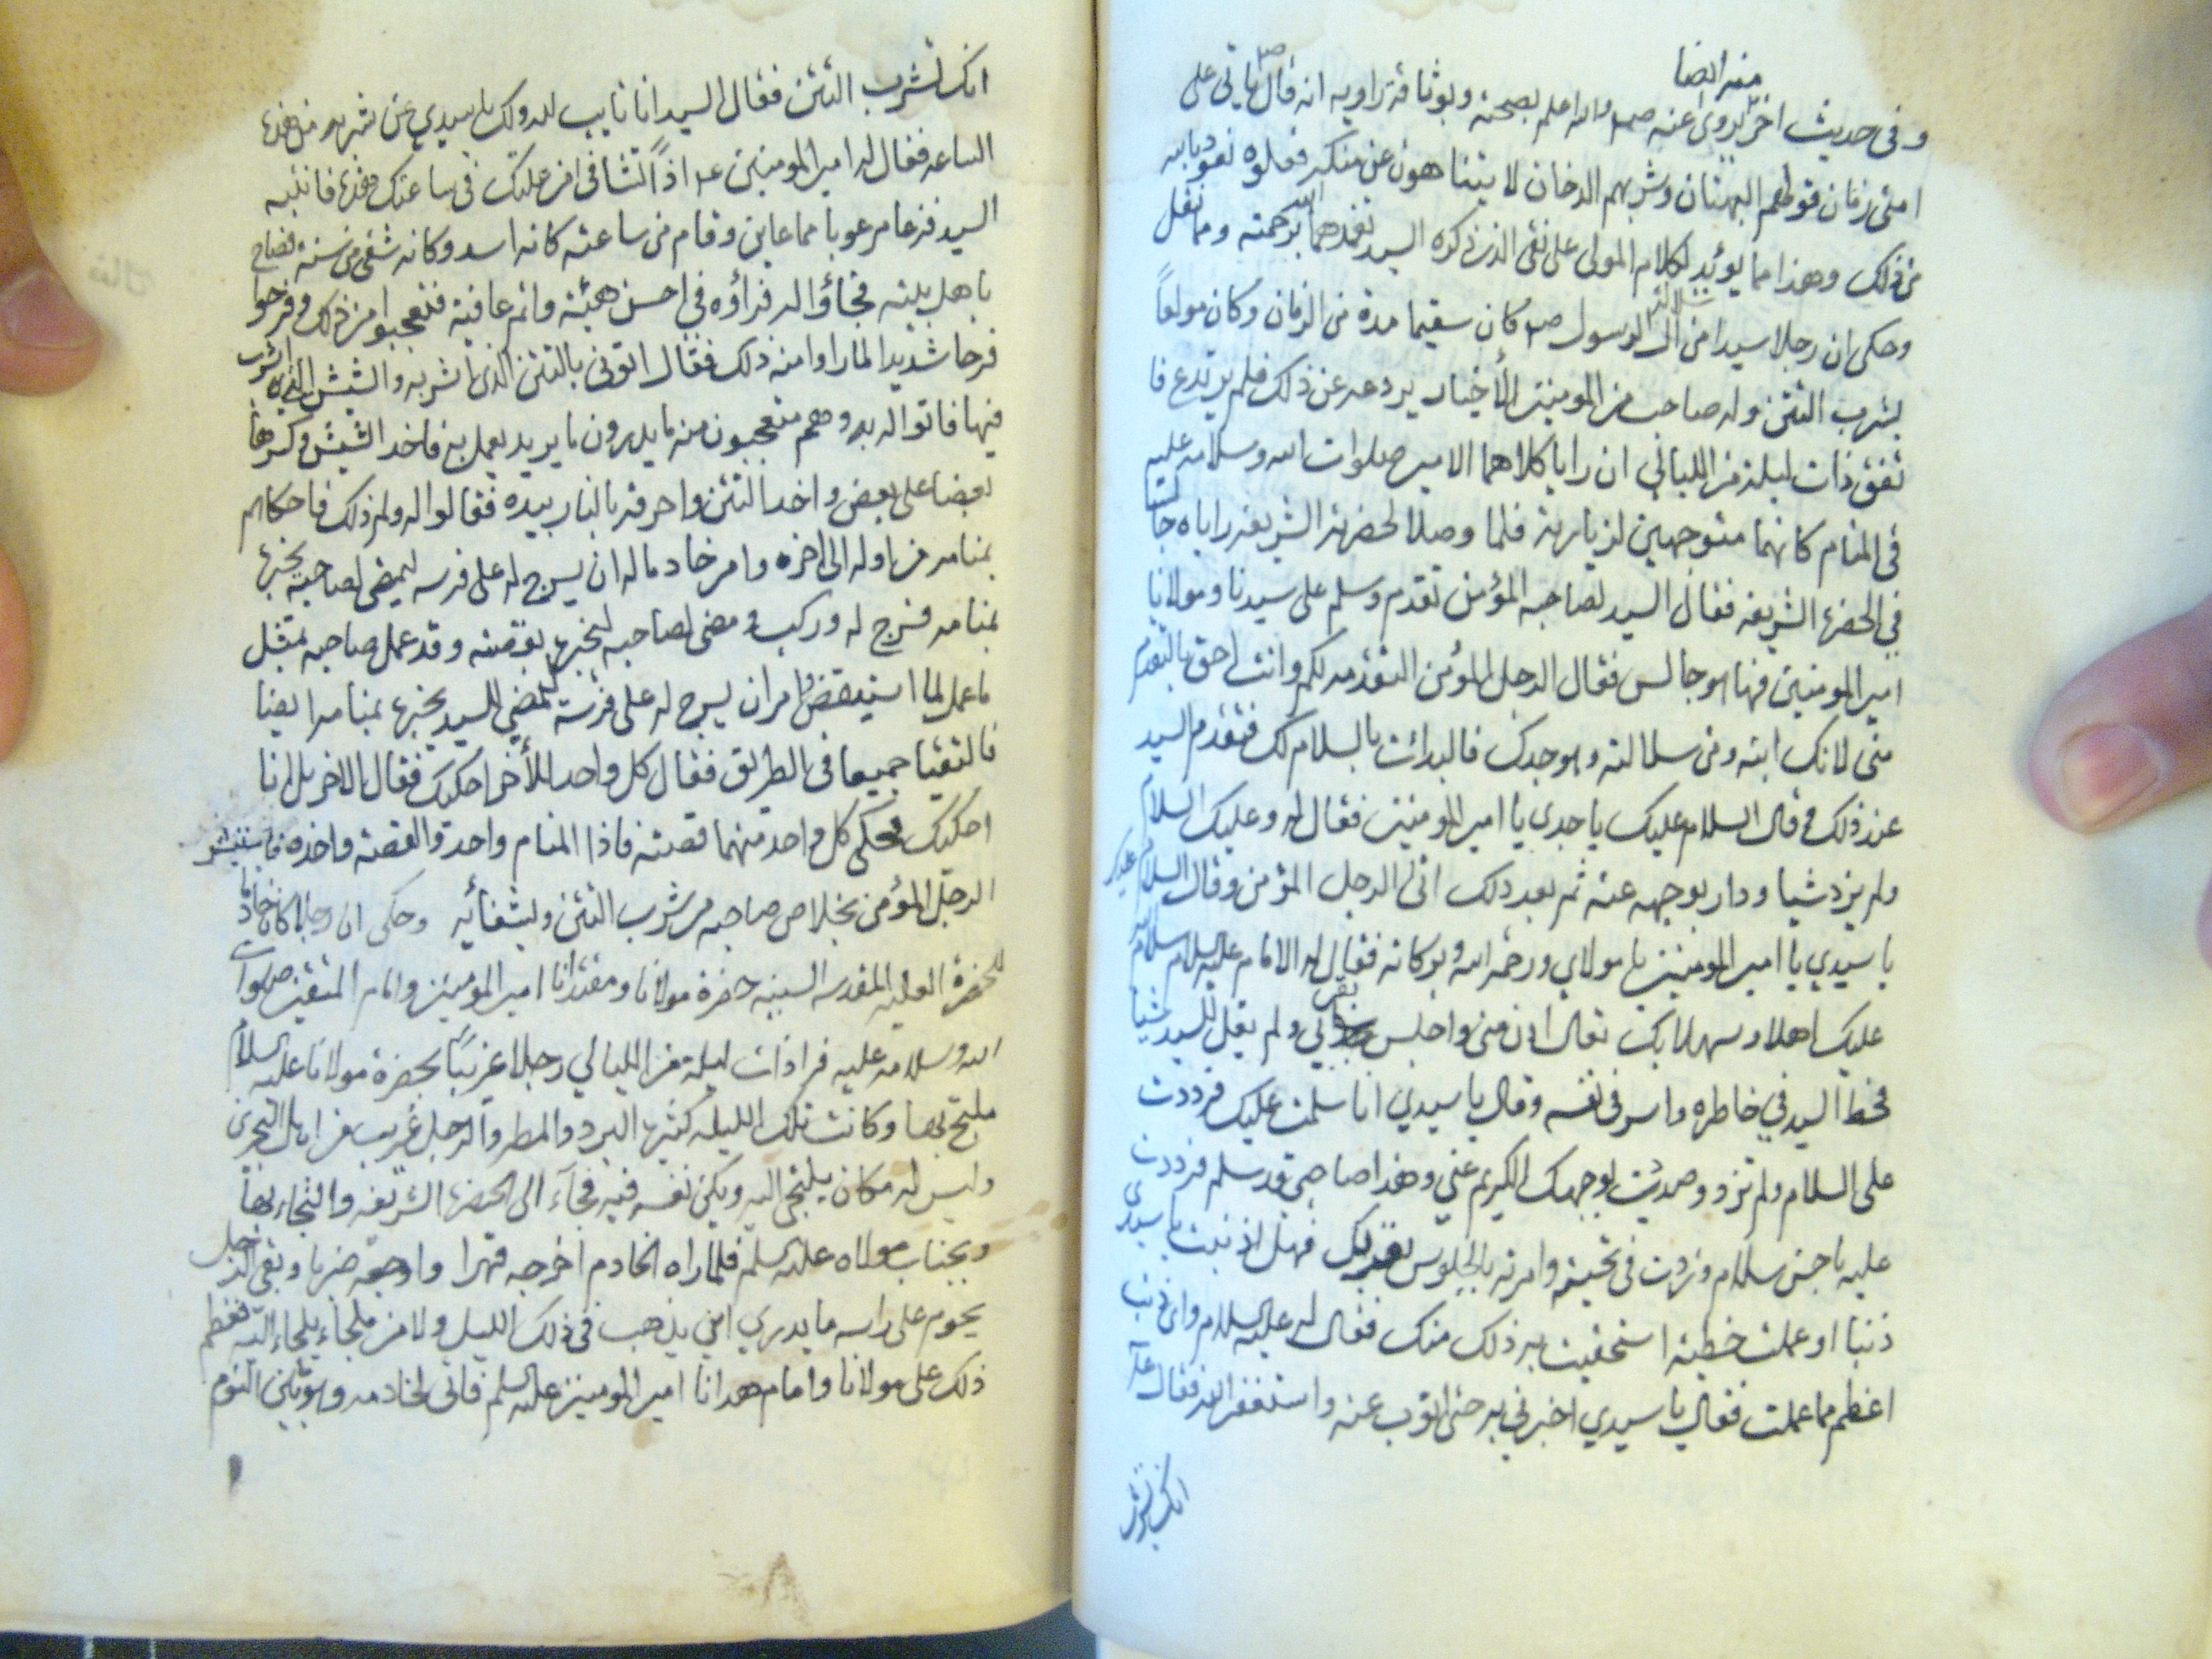 منه ايضا
وفي حديث اخر يروى عنه صم والله اعلم بصحته وبوثاقة راويه انه قال ياتي على
امتي زمان قوطهم البهتان وشربهم الدخان لا يتناهون عن منكر فعلوه نعوذ بالله
من ذلك وهذا مما يوئد لكلام المولى على نقي الذي ذكره السيد تغمدهما الله برحمته ومما نقل
وحكي ان رجلا سيدا من سلالة الرسول صم كان سقيما مدة من الزمان وكان مولعاً
بشرب التتن وله صاحب من المومنين الأخيار يردعه عن ذلك فلم يرتدع فا
تفق ذات ليلة من الليالي ان رايا كلاهما الامير صلوات الله وسلامه عليه
في المنام كانهما متوجهين لزيارته فلما وصلا لحضرته الشريفه راياه جالسا
في الحضرة الشريفه فقال السيد لصاحبه المؤمن تقدم وسلم على سيدنا ومولانا
امير المومنين فها هو جالس فقال الرجل المؤمن التقدمه لكم وانت احق بالتقدم
مني لانك ابنه ومن سلالته وهو جدك فالبدائت بالسلام لك فتقدم السيد
عند ذلك وقال السلام عليك يا جدي يا امير المومنين فقال له وعليك السلام
ولم يزد شيا ودار بوجهه عنه ثم بعد ذلك اتى الرجل المؤمن وقال السلام عليك
يا سيدي يا امير المومنين يا مولاي ورحمة الله وبركاته فقال له الامام عليه السلام سلام الله
عليك اهلا وسهلا بك تعال ادن مني واجلس بقربي ولم يقل للسيد شيا
فحط السيد في خاطره واسر في نفسه وقال يا سيدي انا سلمت عليك فرددت
على السلام ولم تزد وصديت بوجهك الكريم عني وهذا صاحبي قد سلم فرددت
عليه باحسن سلام وزدت في تحيته وامرته بالجلوس بقربك فهل اذنبت يا سيدي
ذنبا او عملت خطيئة استحقيت به ذلك منك فقال له عليه السلام واي ذنب
اعظم مما عملت فقال يا سيدي اخبرني به حتى اتوب عنه واستغفر الله فقال
انك تشرب
انك تشرب التتن فقال السيد انا تايب لله ولك يا سيدي عن شربه من هذه
الساعه فقال له امير المومنين عم اذاً تشافى من علتك في ساعتك هذه فانتبه
السيد فزعا مرعوبا مما عاين وقام من ساعته كانه اسد وكانه شفي من سنة فصاح
باهل بيته فجاؤا اله فراؤه في احسن هيئة واتم عافية فتعجبوا من ذلك وفرحوا
فرحا شديدا لما راوا منه ذلك فقال اتوني بالتتن الذي اشربه والشيش التي اشرب
فيها فاتوا له به وهم متعجبون منه ما يدرون ما يريد يعمل به فاخد الشيش وكسرها
بعضا على بعض واخد التتن واحرقه بالنار بيده فقالوا له ولم ذلك فاحكاهم
بمنامه من اوله الى اخره وامر خادما له ان يسرج له على فرسه ليمضي لصاحبه يخبره
بمنامه فسرج له وركب ومضى لصاحبه ليخبره بقصته وقد عمل صاحبه بمثل
ما عمل لما استيقض وامر ان يسرج له على فرسه ليمضي للسيد يخبره بمنامه ايضا
فالتقيا جميعا في الطريق فقال كل واحد للأخر احكيك فقال الاخر بل انا
احكيك فحكى كل واحد منهما قصته فاذا المنام واحد والقصة واحده فاستبشر
الرجل المؤمن بخلاص صاحبه من شرب التتن وبشفائه وحكي ان رجلا كان خادما
للحضرة العليه المقدسه السنيه حضرة مولانا ومقتدانا امير المومنين وامام المتقين صلوات
الله وسلامه عليه فراذات ليلة من الليالي رجلا غريباً بحضرة مولانا عليه السلام
ملتجئ بها وكانت تلك الليله كثيرة البرد والمطر والرجل غريب من اهل البحرين
وليس له مكان يلتجي اليه ويكن نفسه فيه فجآء الى الحضرة الشريفه والتجاء بها
وبجناب مولاه عليه السلم فلما راه الخادم اخرجه قهرا واوجعه ضربا وبقي الرجل
يحوم على راسه ما يدري اين يذهب في ذلك الليل ولا من ملجاء يلجاء اليه فعظم
ذلك على مولانا وامام هدانا امير المومنين عليه السلم فاتى لخادمه وهو بين النوم